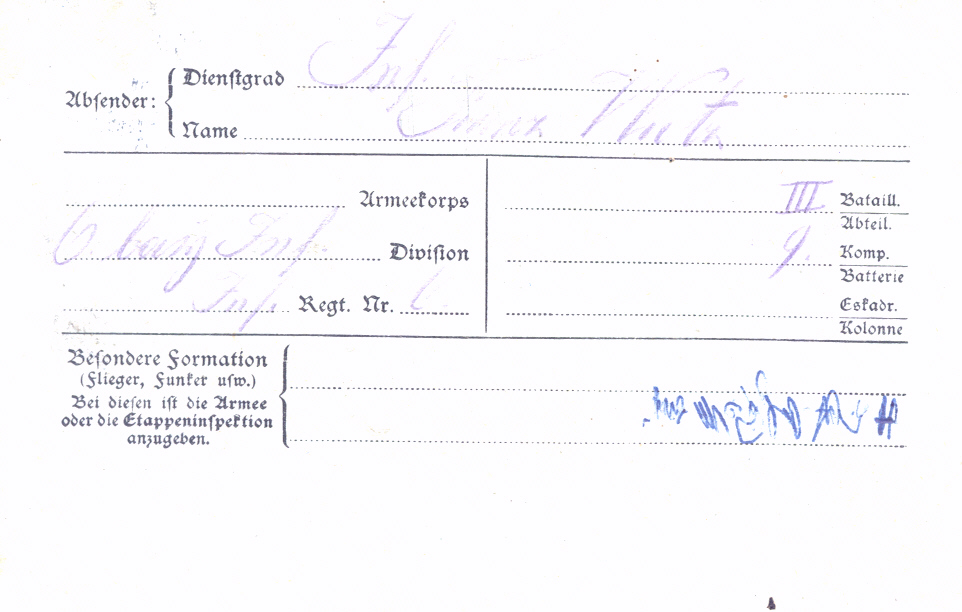 Absender: Dienstgrad Inf.
Name
Armeekorps
6 bay Inf Division
Inf. Regt. Nr. 6
III Bataill.
Abteil.
9. Komp.
Batterie
Eskadr.
Kolonne
Besondere Formation
(Flieger, Funker usw.)
Bei diesen ist die Armee
oder die Etappeninspektion
anzugeben.